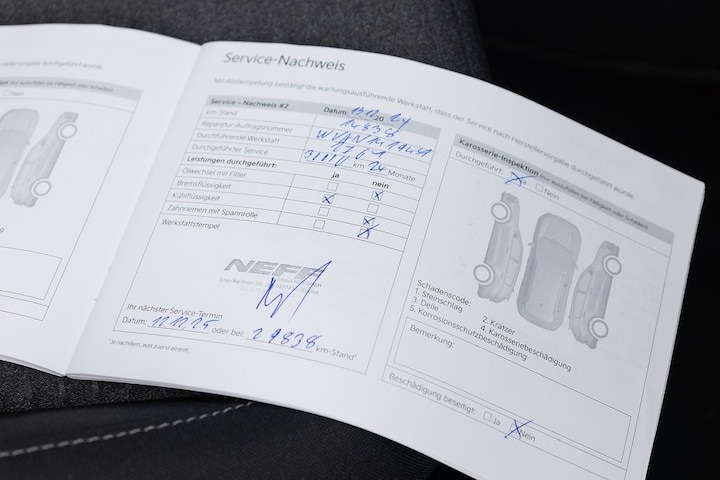 vorgabe durchgeführt wurde.
(nur Auszufüllen bei Fälligkeit oder Schäden)
Nein
Service-Nachweis
Mit Abstempelung bestätigt die wartungsausführende Werkstatt, dass der Service nach Herstellervorgabe durchgeführt wurde.
Service – Nachweis #2
Datum: 20
km-Stand 14838
Reparatur-Auftragsnummer
Durchführende Werkstatt
Durchgeführter Service km 24 Monate
Leistungen durchgeführt: ja nein
Ölwechsel mit Filter
Bremsflüssigkeit
Kühlflüssigkeit
Zahnriemen mit Spannrolle
Werkstattstempel
NEFF
Ihr nächster Service-Termin
Datum: 11.12.25 oder bei: 29838 km-Stand¹
¹Je nachdem, was zuerst eintritt.
Karosserie-Inspektion (nur Auszufüllen bei Fälligkeit oder Schäden)
Durchgeführt: Ja Nein
Schadenscode:
1. Steinschlag 2. Kratzer
3. Delle 4. Karosseriebeschädigung
5. Korrosionsschutzbeschädigung
Bemerkung:
Beschädigung beseitigt: Ja Nein